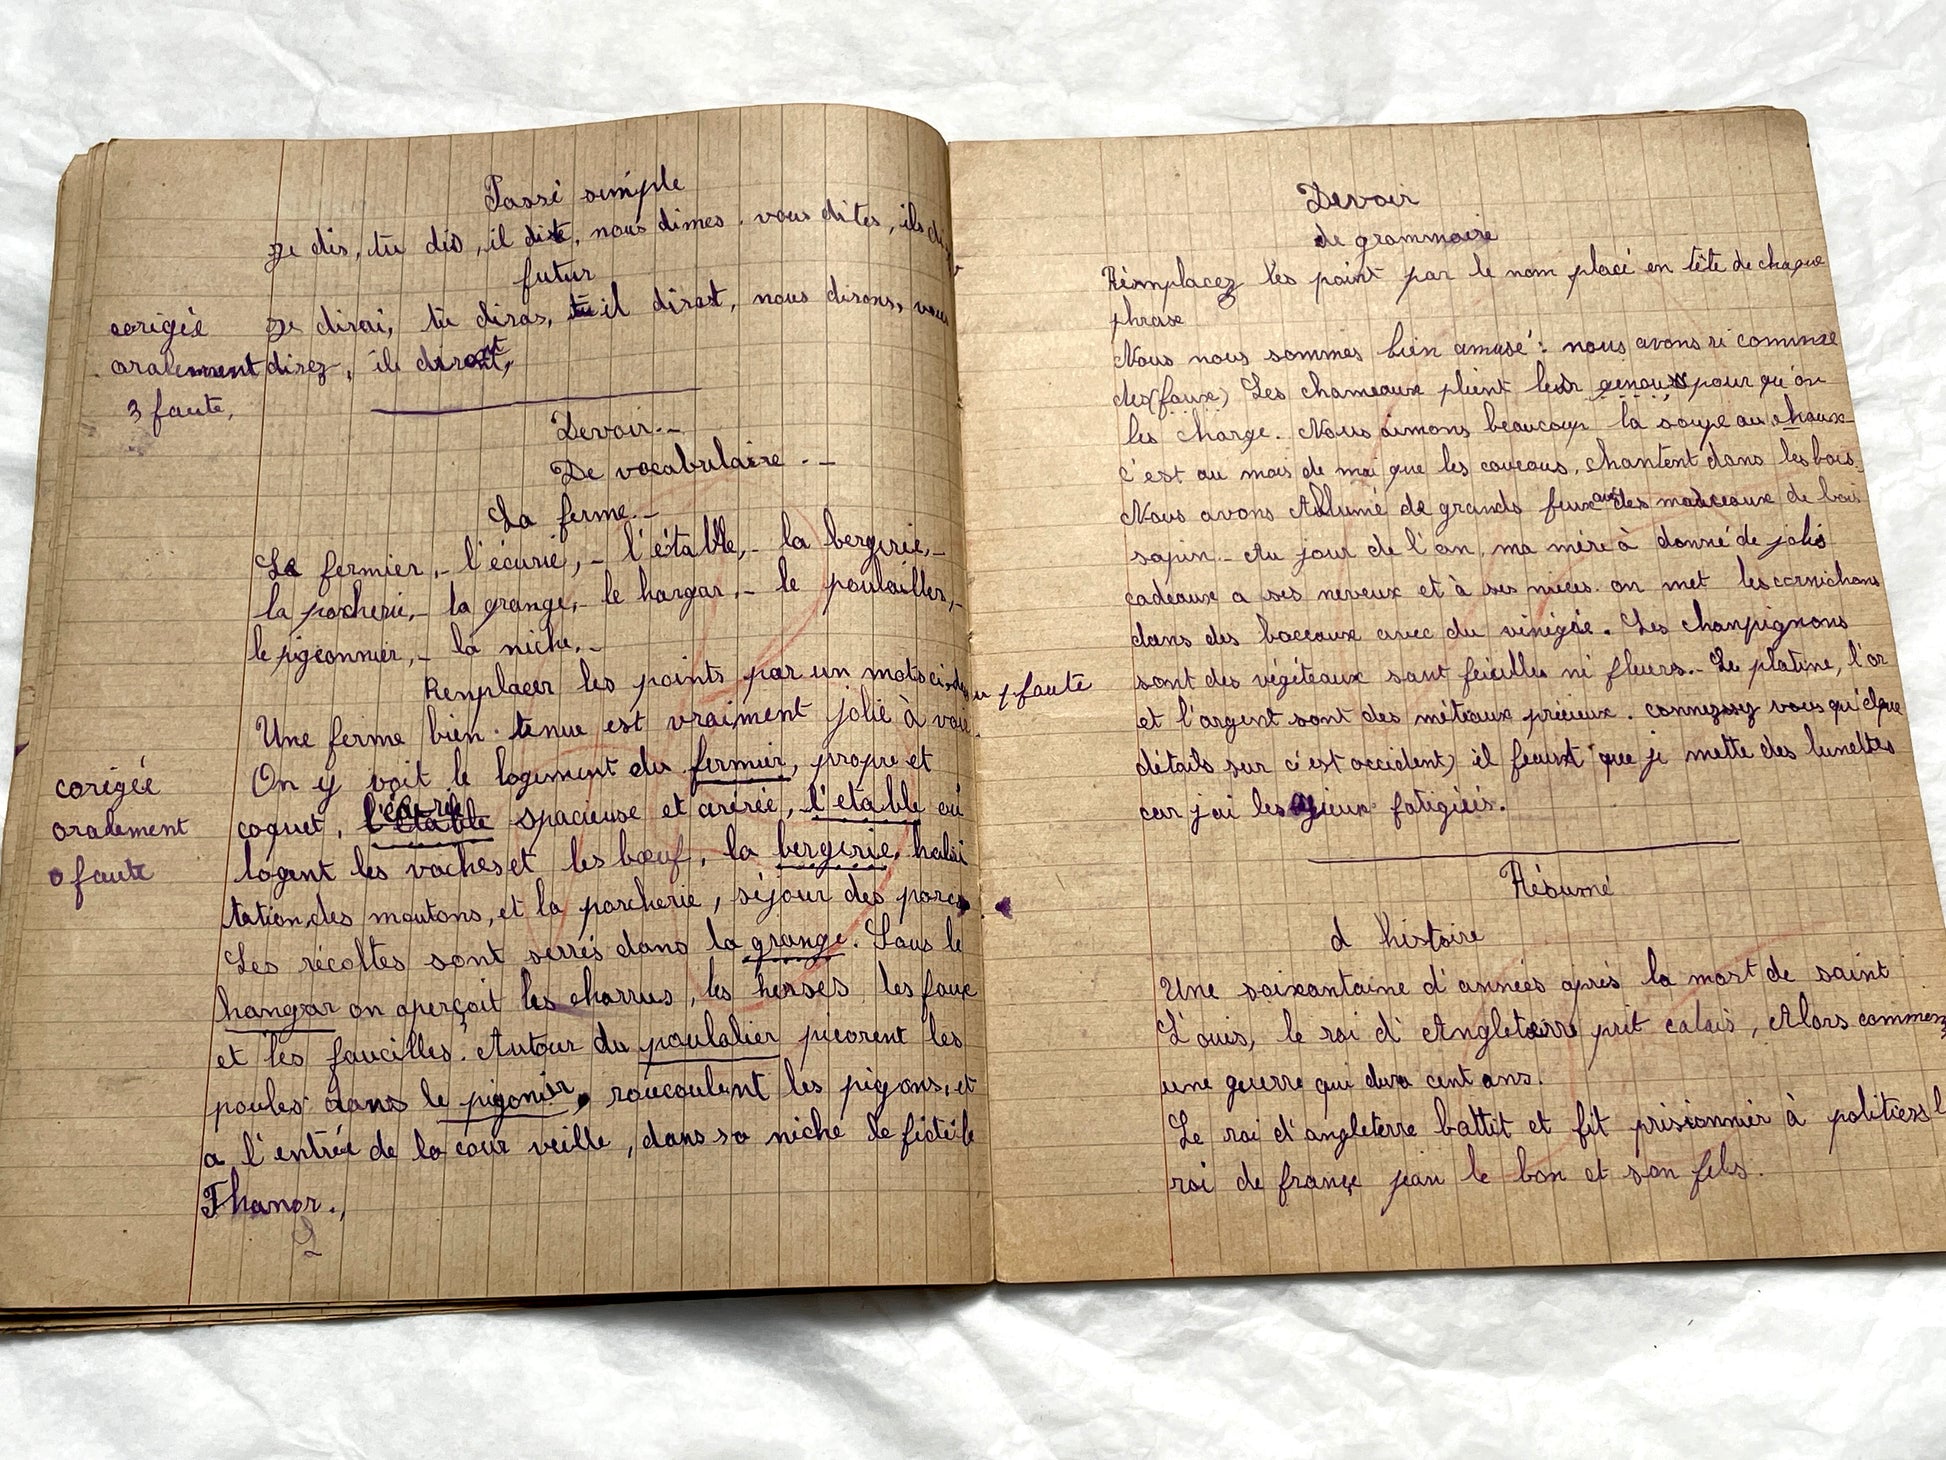 Passé simple
Je dis, tu dis, il dit, nous dimes. vous dites, ils di
futur
corigée
Je dirai, tu diras, il dirat, nous dirons, vous
oralement
direz, ils diront,
3 faute,
Devoir.-
De vocabulaire.-
La ferme.-
Le fermier,- l'écurie,- l'étable,- la bergerie,-
la porcherie,- la grange,- le hangar,- le poulailler,-
le pigeonnier,- la niche.-
Remplacer les points par un mots ci-des
Une ferme bien tenue est vraiment jolie à voir
On y voit le logement du fermier, propre et
corigée
coquet, l'écurie spacieuse et aérée, l'etable où
oralement
logent les vaches et les bœuf, la bergerie, habi
0 faute
tation des moutons, et la porcherie, séjour des porcs
Les récoltes sont serrés dans la grange. Sous le
hangar on aperçoit les charrus, les herses les faux
et les faucilles. Autour du poulalier picorent les
poules dans le pigonier, roucoulent les pigons, et
a l'entrée de la cour veille, dans sa niche le fidéle
Thanor.,
Devoir
de grammaire
Remplacez les point par le nom placé en tête de chaque
phrase
Nous nous sommes bien amusé: nous avons ri comme
des (faux) Les chameaux plient leur genoux pour qu'on
les charge. Nous aimons beaucoup la soupe au choux
c'est au mois de mai que les coucous, chantent dans les bois.
Nous avons Allumé de grands feux avec des morceaux de bois
sapin. Au jour de l'an, ma mère à donné de jolis
cadeaux a ses neveux et à ses nieces. on met les cornichons
dans des bocaux avec du vinégre. Les chanpignons
1 faute
sont des végéteaux sant feuilles ni fleurs.- Le platine, l'or
et l'argent sont des méteaux précieux. vous qu'elque
détails sur c'est occident, il feaut que je mette des lunettes
car j'ai les yieux fatigués.
Résumé
d histoire
Une soixantaine d'années aprés la mort de saint
L'ouis, le roi d'Angleterre prit calais, Alors commen
une guerre qui dura cent ans.
Le roi d'angleterre battit et fit prisionnier à poitiers l
roi de france jean le bon et son fils.